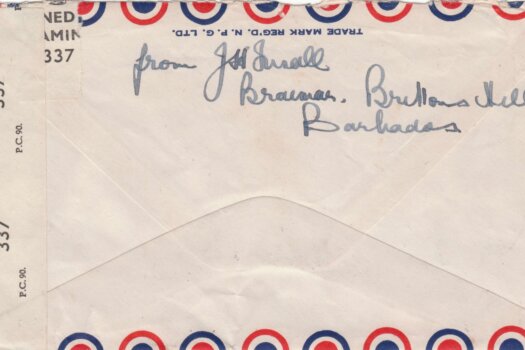 NED
AMIN
337
TRADE MARK REG'D. N.P.G. LTD.
from J H Small
Braemar. Brittons Hill
Barbados
337
P.C. 90.
337
P.C. 90.